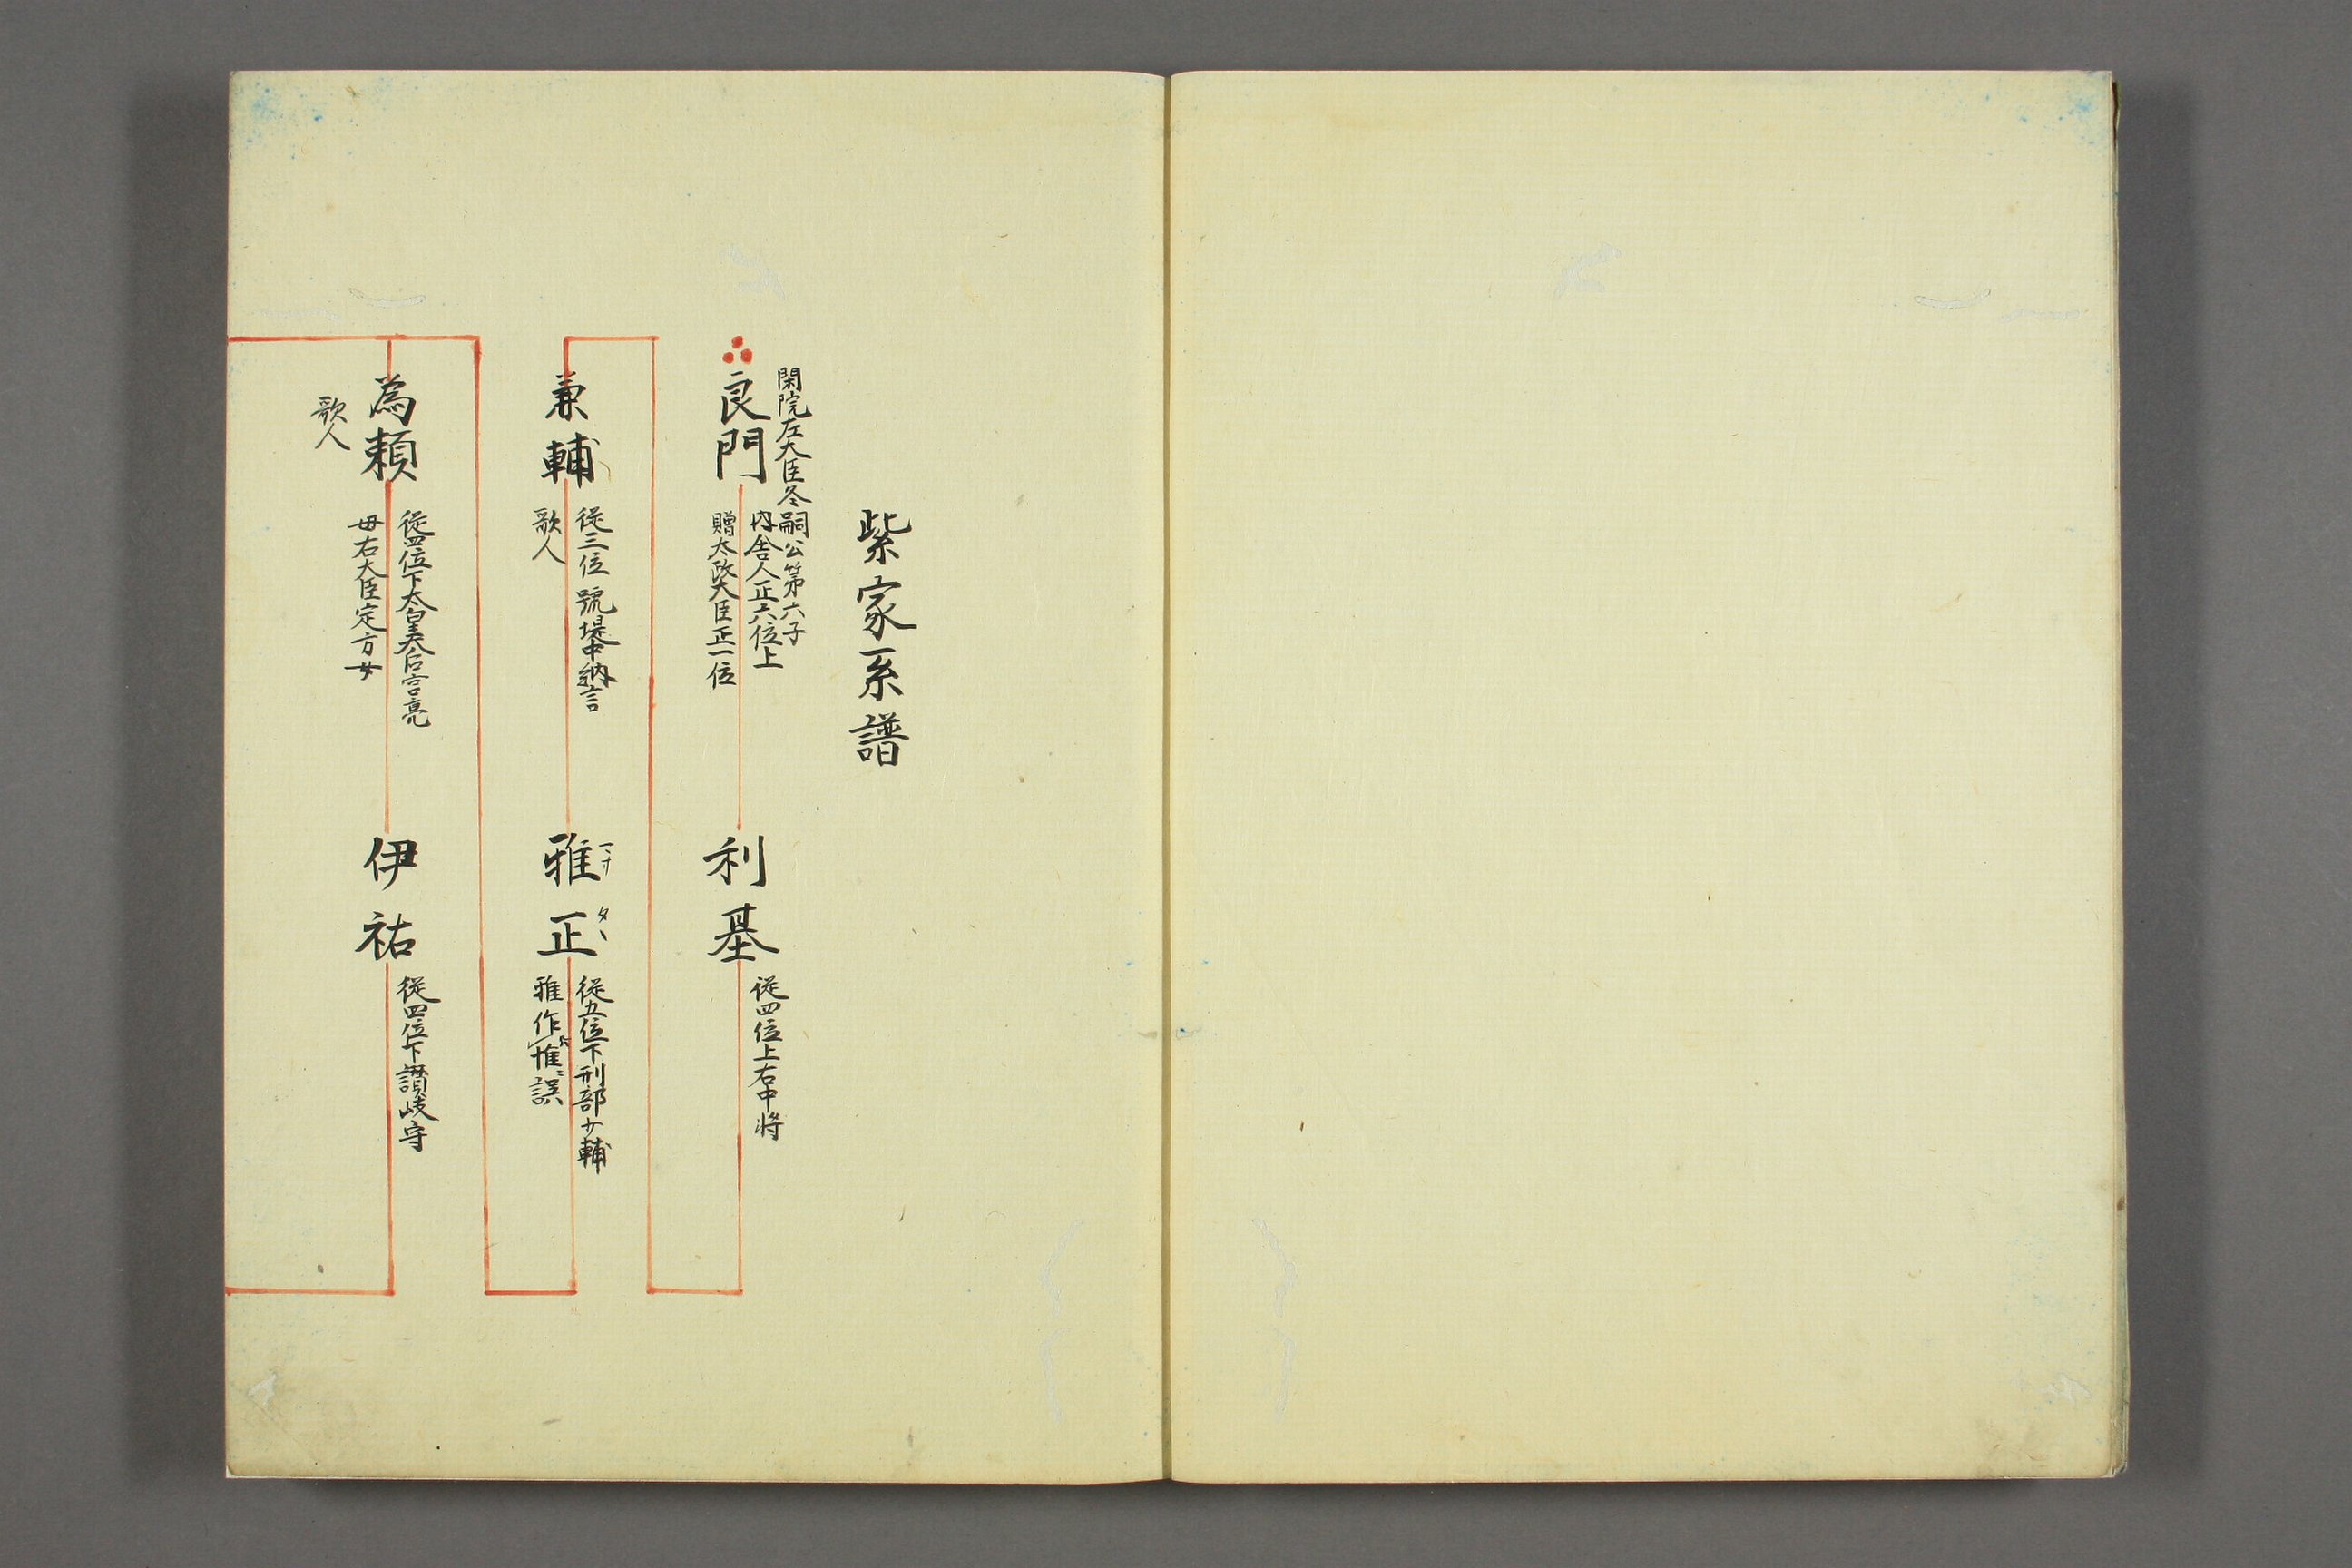 紫家系譜
閑院左大臣冬嗣公第六子
良門
内舎人正六位上
贈太政大臣正一位
利基
従四位上右中将
兼輔
従三位 號堤中納言
歌人
雅正
従五位下刑部少輔
雅作惟ハ誤
為頼
従四位下太皇太后宮亮
母右大臣定方女
歌人
伊祐
従四位下讃岐守